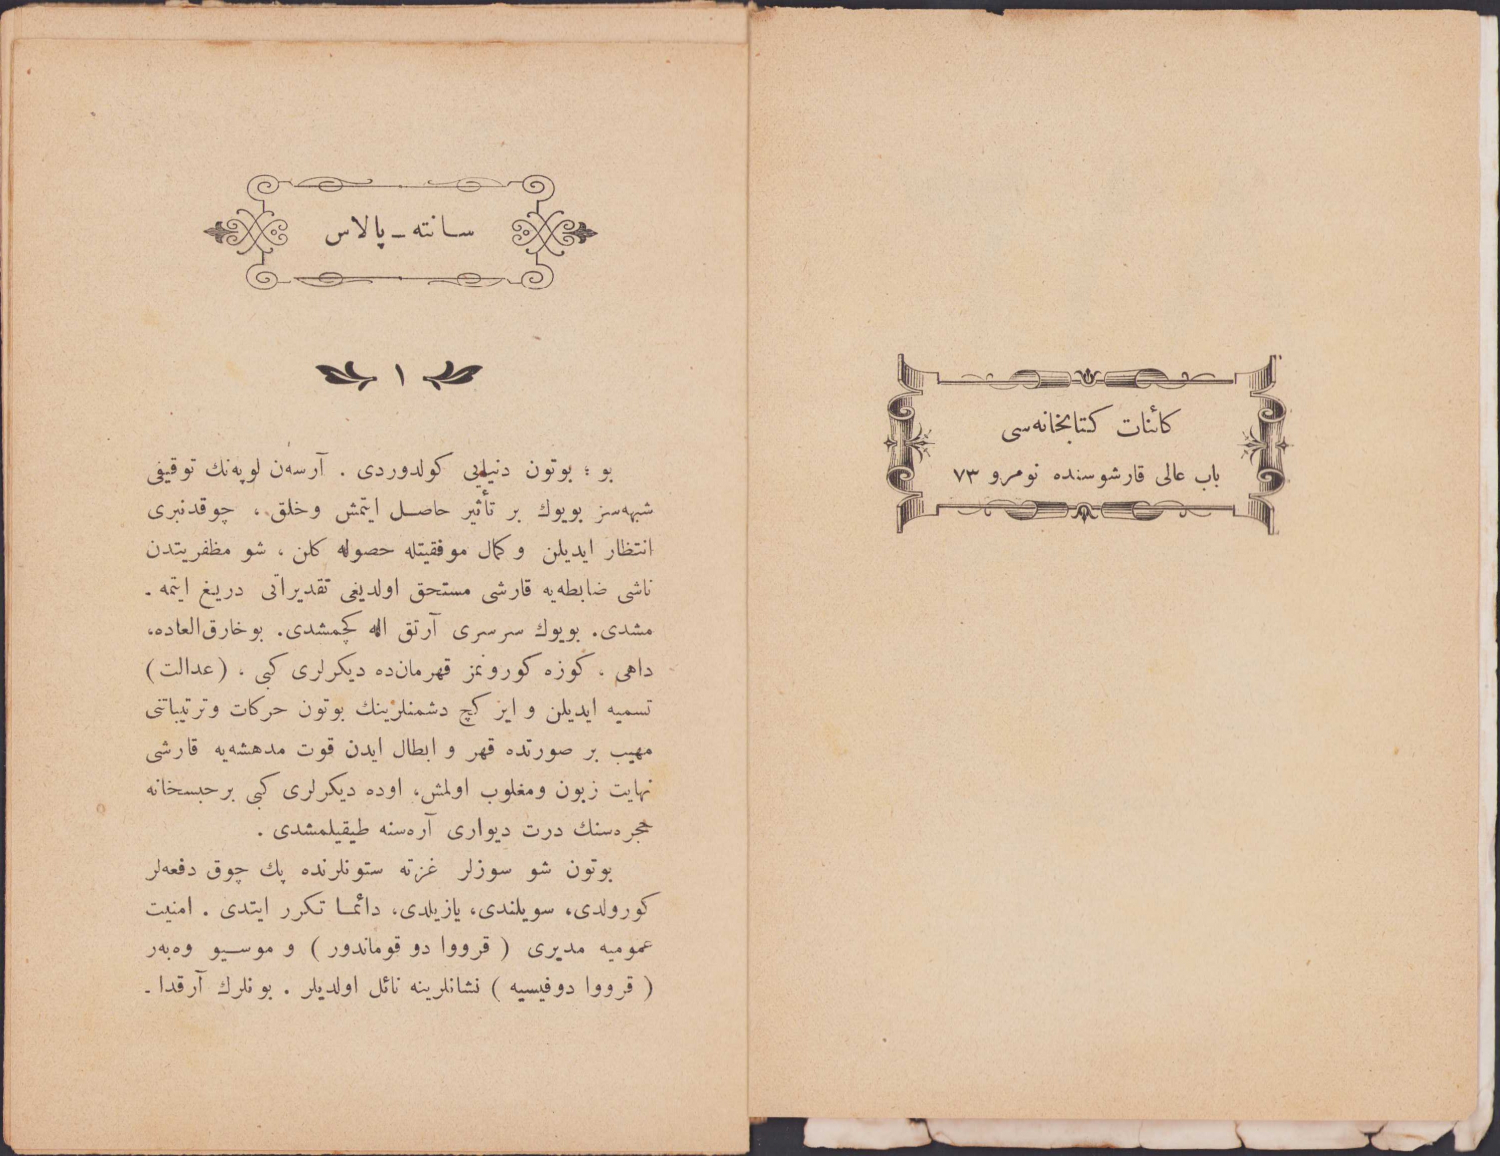 كائنات كتابخانه‌سی
باب عالی قارشوسنده نومرو ۷۳
سانته ـ پالاس
۱
بو ؛ بوتون دنیایی كولدوردی . آرسه‌ن لوپه‌نك توقیفی
شبهه‌سز بویوك بر تأثیر حاصل ایتمش وخلق ، چوقدنبری
انتظار ایدیلن و كمال موفقیتله حصوله كلن ، شو مظفریتدن
ناشی ضابطه‌یه قارشی مستحق اولدیغی تقدیراتی دریغ ایتمه ـ
مشدی. بویوك سرسری آرتق اله كچمشدی. بو خارق‌العاده،
داهی ، كوزه كورونمز قهرمان‌ده دیكرلری كبی ، (عدالت)
تسمیه ایدیلن و ایز كچ دشمنلرینك بوتون حركات وترتیباتنی
مهیب بر صورتده قهر و ابطال ایدن قوت مدهشه‌یه قارشی
نهایت زبون ومغلوب اولمش، اوده دیكرلری كبی برحبسخانه
حجره‌سنك درت دیواری آره‌سنه طیقیلمشدی .
بوتون شو سوزلر غزته ستونلرنده پك چوق دفعه‌لر
كورولدی، سویلندی، یازیلدی، دائما تكرر ایتدی . امنیت
عمومیه مدیری ( قرووا دو قوماندور ) و موسیو وه‌به‌ر
( قرووا دوفیسیه ) نشانلرینه نائل اولدیلر . بونلرك آرقدا ـ